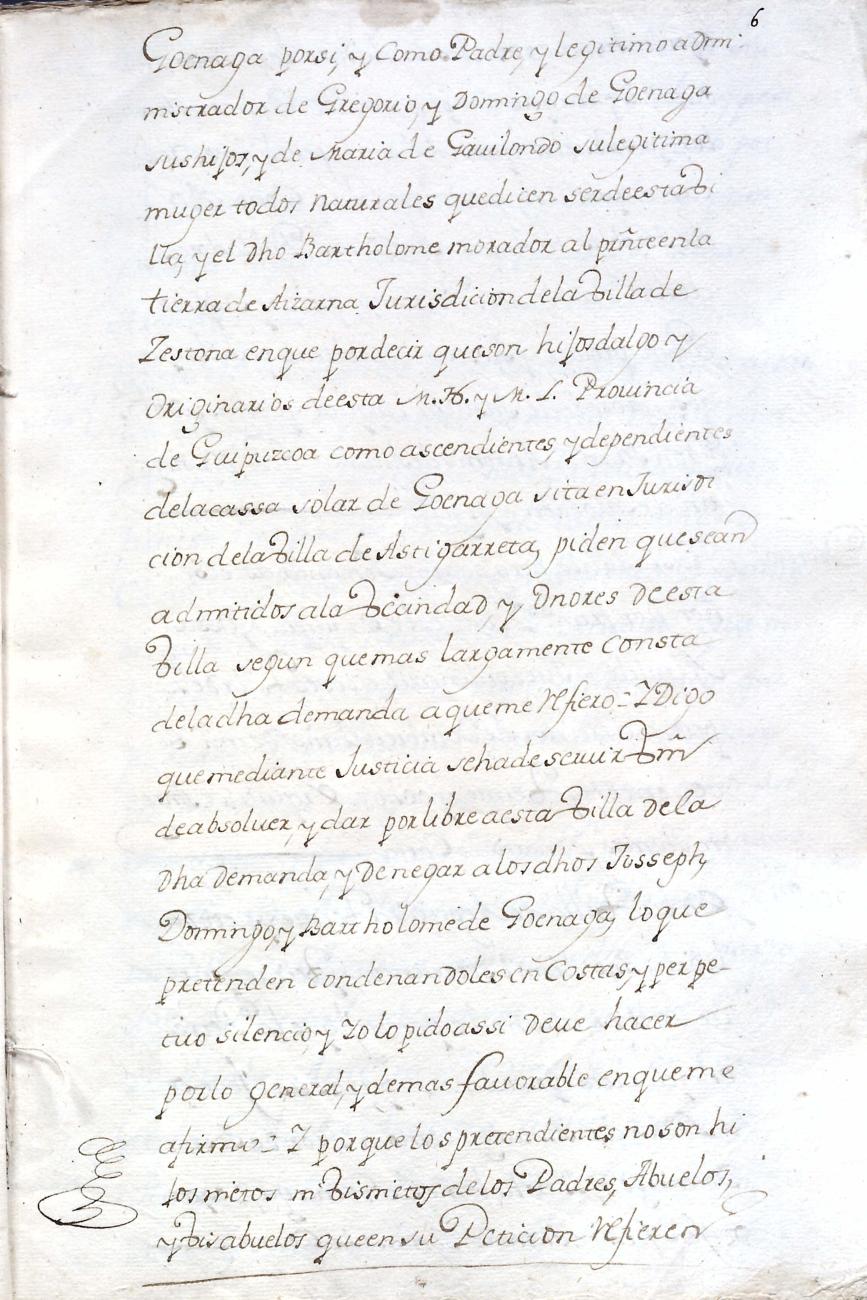 6
Goenaga porsi, y Como Padre, y legitimo admi
nistrador de Gregorio, y Domingo de Goenaga
sus hijos, y de Maria de Gauilondo su legitima
muger todos naturales que dicen ser de esta Vi
lla, y el dho Bartholome morador al prnte en la
tierra de Aizarna Jurisdicion de la Villa de
Zestona en que por decir que son hijosdalgo y
originarios de esta M. N. y M. L. Prouincia
de Guipuzcoa como ascendientes, y dependientes
de la cassa solar de Goenaga sita en Jurisdi
cion de la Villa de Astigarreta, piden que sean
admitidos a la Vecindad y Onores de esta
Villa segun que mas largamente Consta
de la dha demanda a que me Refiero = Y Digo
que mediante Justicia se ha de seruir Vm
de absoluer, y dar por libre a esta Villa de la
dha demanda, y denegar a los dhos Josseph,
Domingo, y Bartholome de Goenaga, lo que
pretenden Condenandoles en Costas, y perpe-
tuo silencio, y Yo lo pido assi deue hacer
por lo general, y demas fauorable en que me
afirmo = Y porque los pretendientes no son hi
jos nietos ni Visnietos de los Padres, Abuelos,
y Visabuelos que en su Peticion Refieren